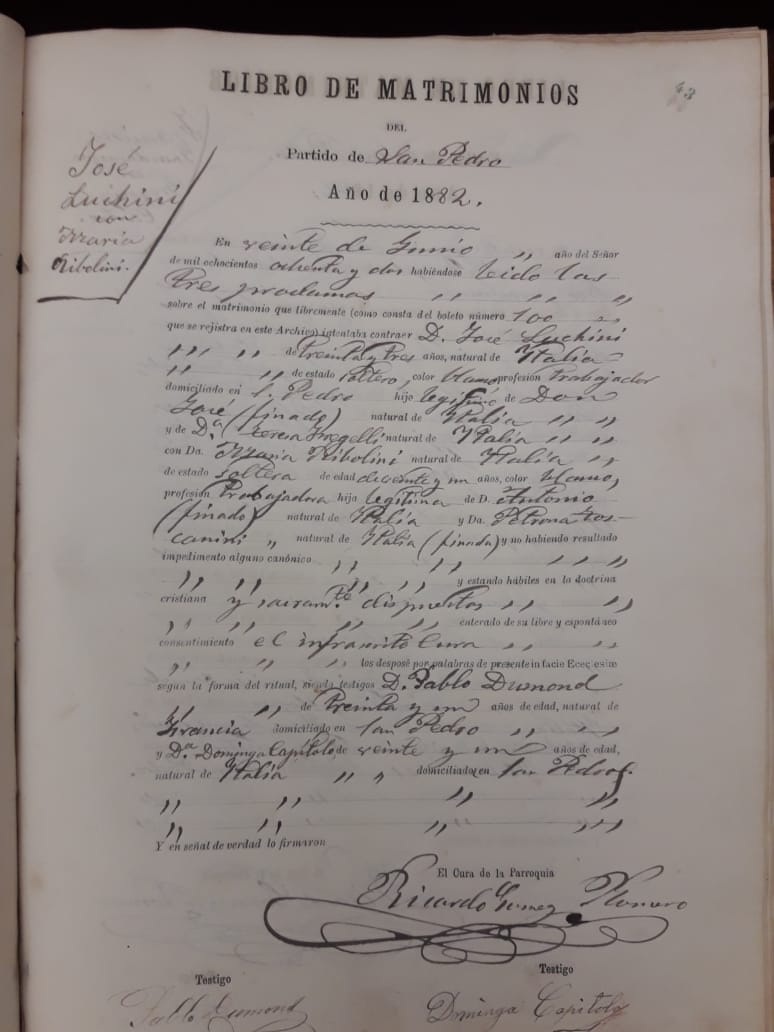 43
LIBRO DE MATRIMONIOS
DEL
Partido de San Pedro
Año de 1882.
José
Luchini
con
Maria
Ribolini.
En veinte de Junio " año del Señor
de mil ochocientos ochenta y dos habiéndose leido las
tres proclamas " " "
sobre el matrimonio que libremente (como consta del boleto número 100 "
que se rejistra en este Archivo) intentaba contraer D. José Luchini
" " " de treinta y tres años, natural de Italia
" " de estado soltero, color blanco profesión trabajador
domiciliado en S. Pedro hijo legitimo de Don
José (finado) natural de Italia " "
y de Da. Teresa natural de Italia " "
con Da. Maria Ribolini natural de Italia "
de estado soltera de edad de veinte y un años, color blanco,
profesión trabajadora hija legitima de D. Antonio
(finado) natural de Italia y Da. Petrona Tos-
canini " natural de Italia (finada) y no habiendo resultado
impedimento alguno canónico " " " " "
" " " " y estando hábiles en la doctrina
cristiana y sacramte. dispuestos " " "
" " " " " enterado de su libre y espontáneo
consentimiento el infrascrito Cura " " "
" " " los desposé por palabras de presente in facie Eceçlesiæ
segun la forma del ritual, siendo testigos D. Pablo Dumond
" " de treinta y un años de edad, natural de
Francia domiciliado en San Pedro " "
y Da. Dominga Capitolo de veinte y un años de edad,
natural de Italia " " domiciliados en San Pedro
" " " "
" " " "
Y en señal de verdad lo firmaron
El Cura de la Parroquia
Ricardo Gomez Romero
Testigo
Testigo
Pablo Dumond
Dominga Capitolo